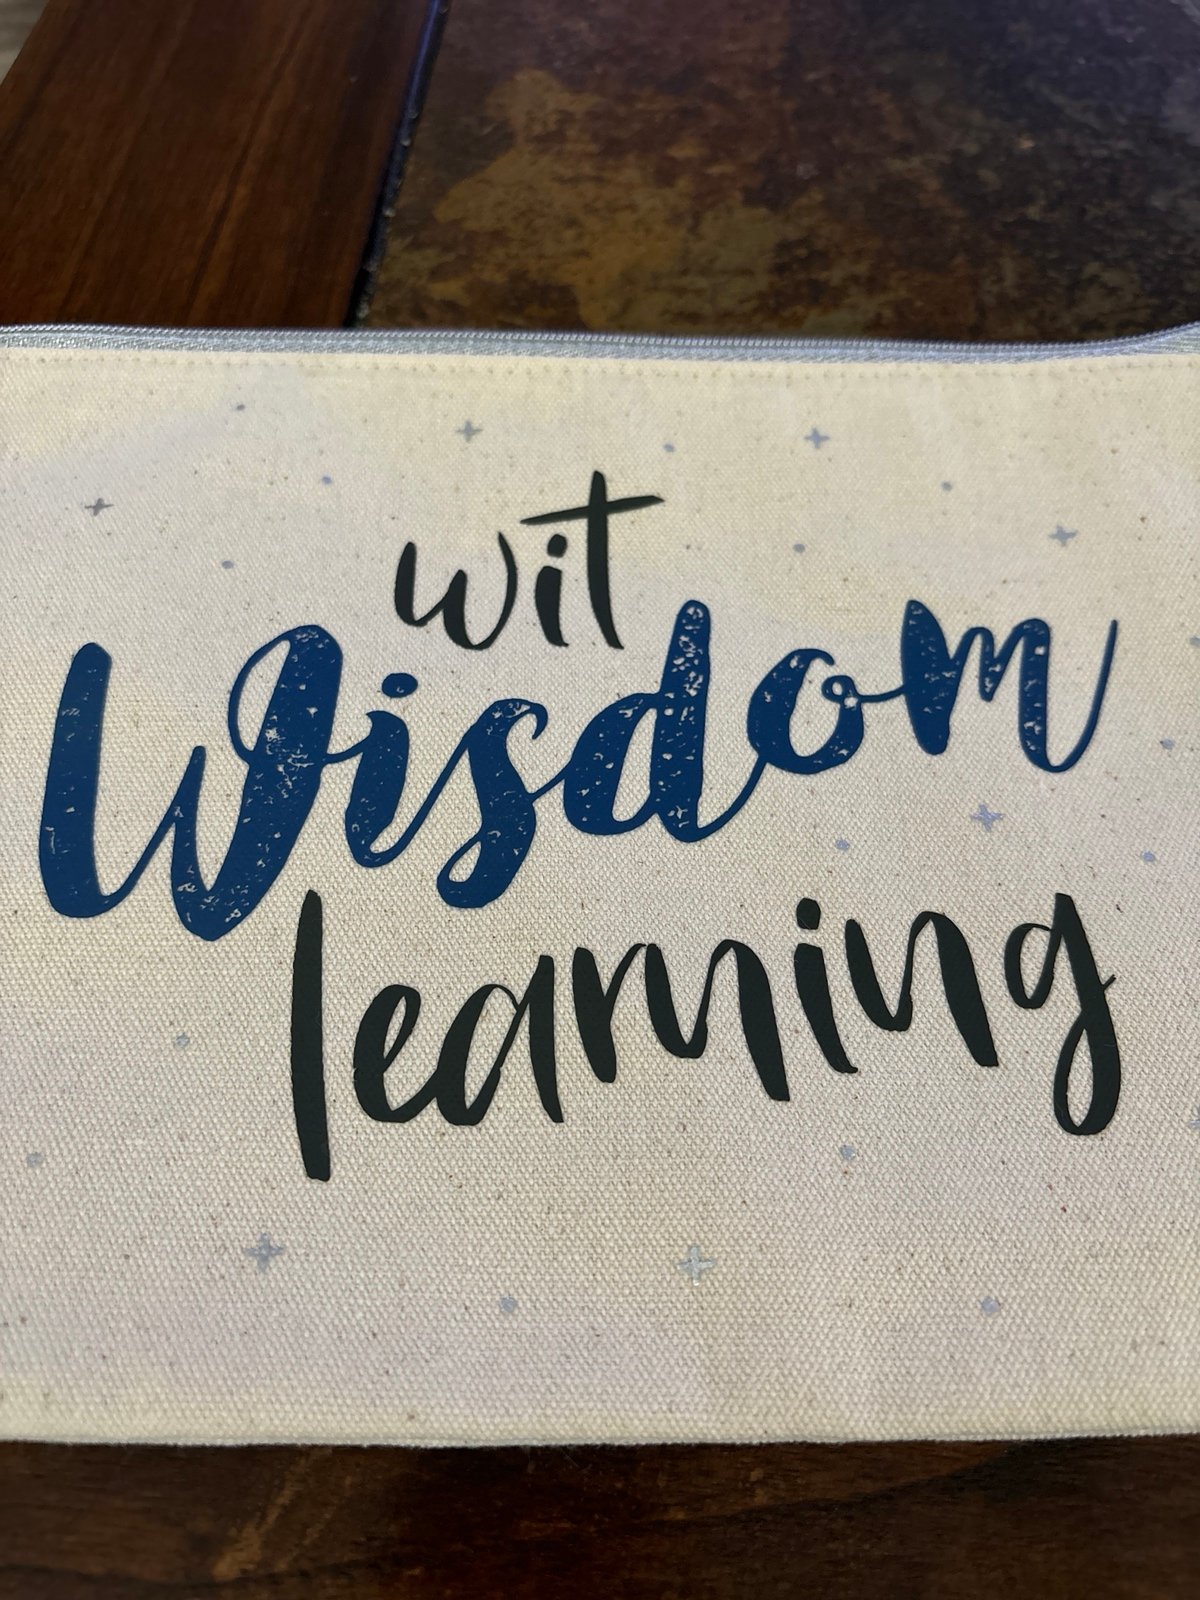 wit
Wisdom
learning